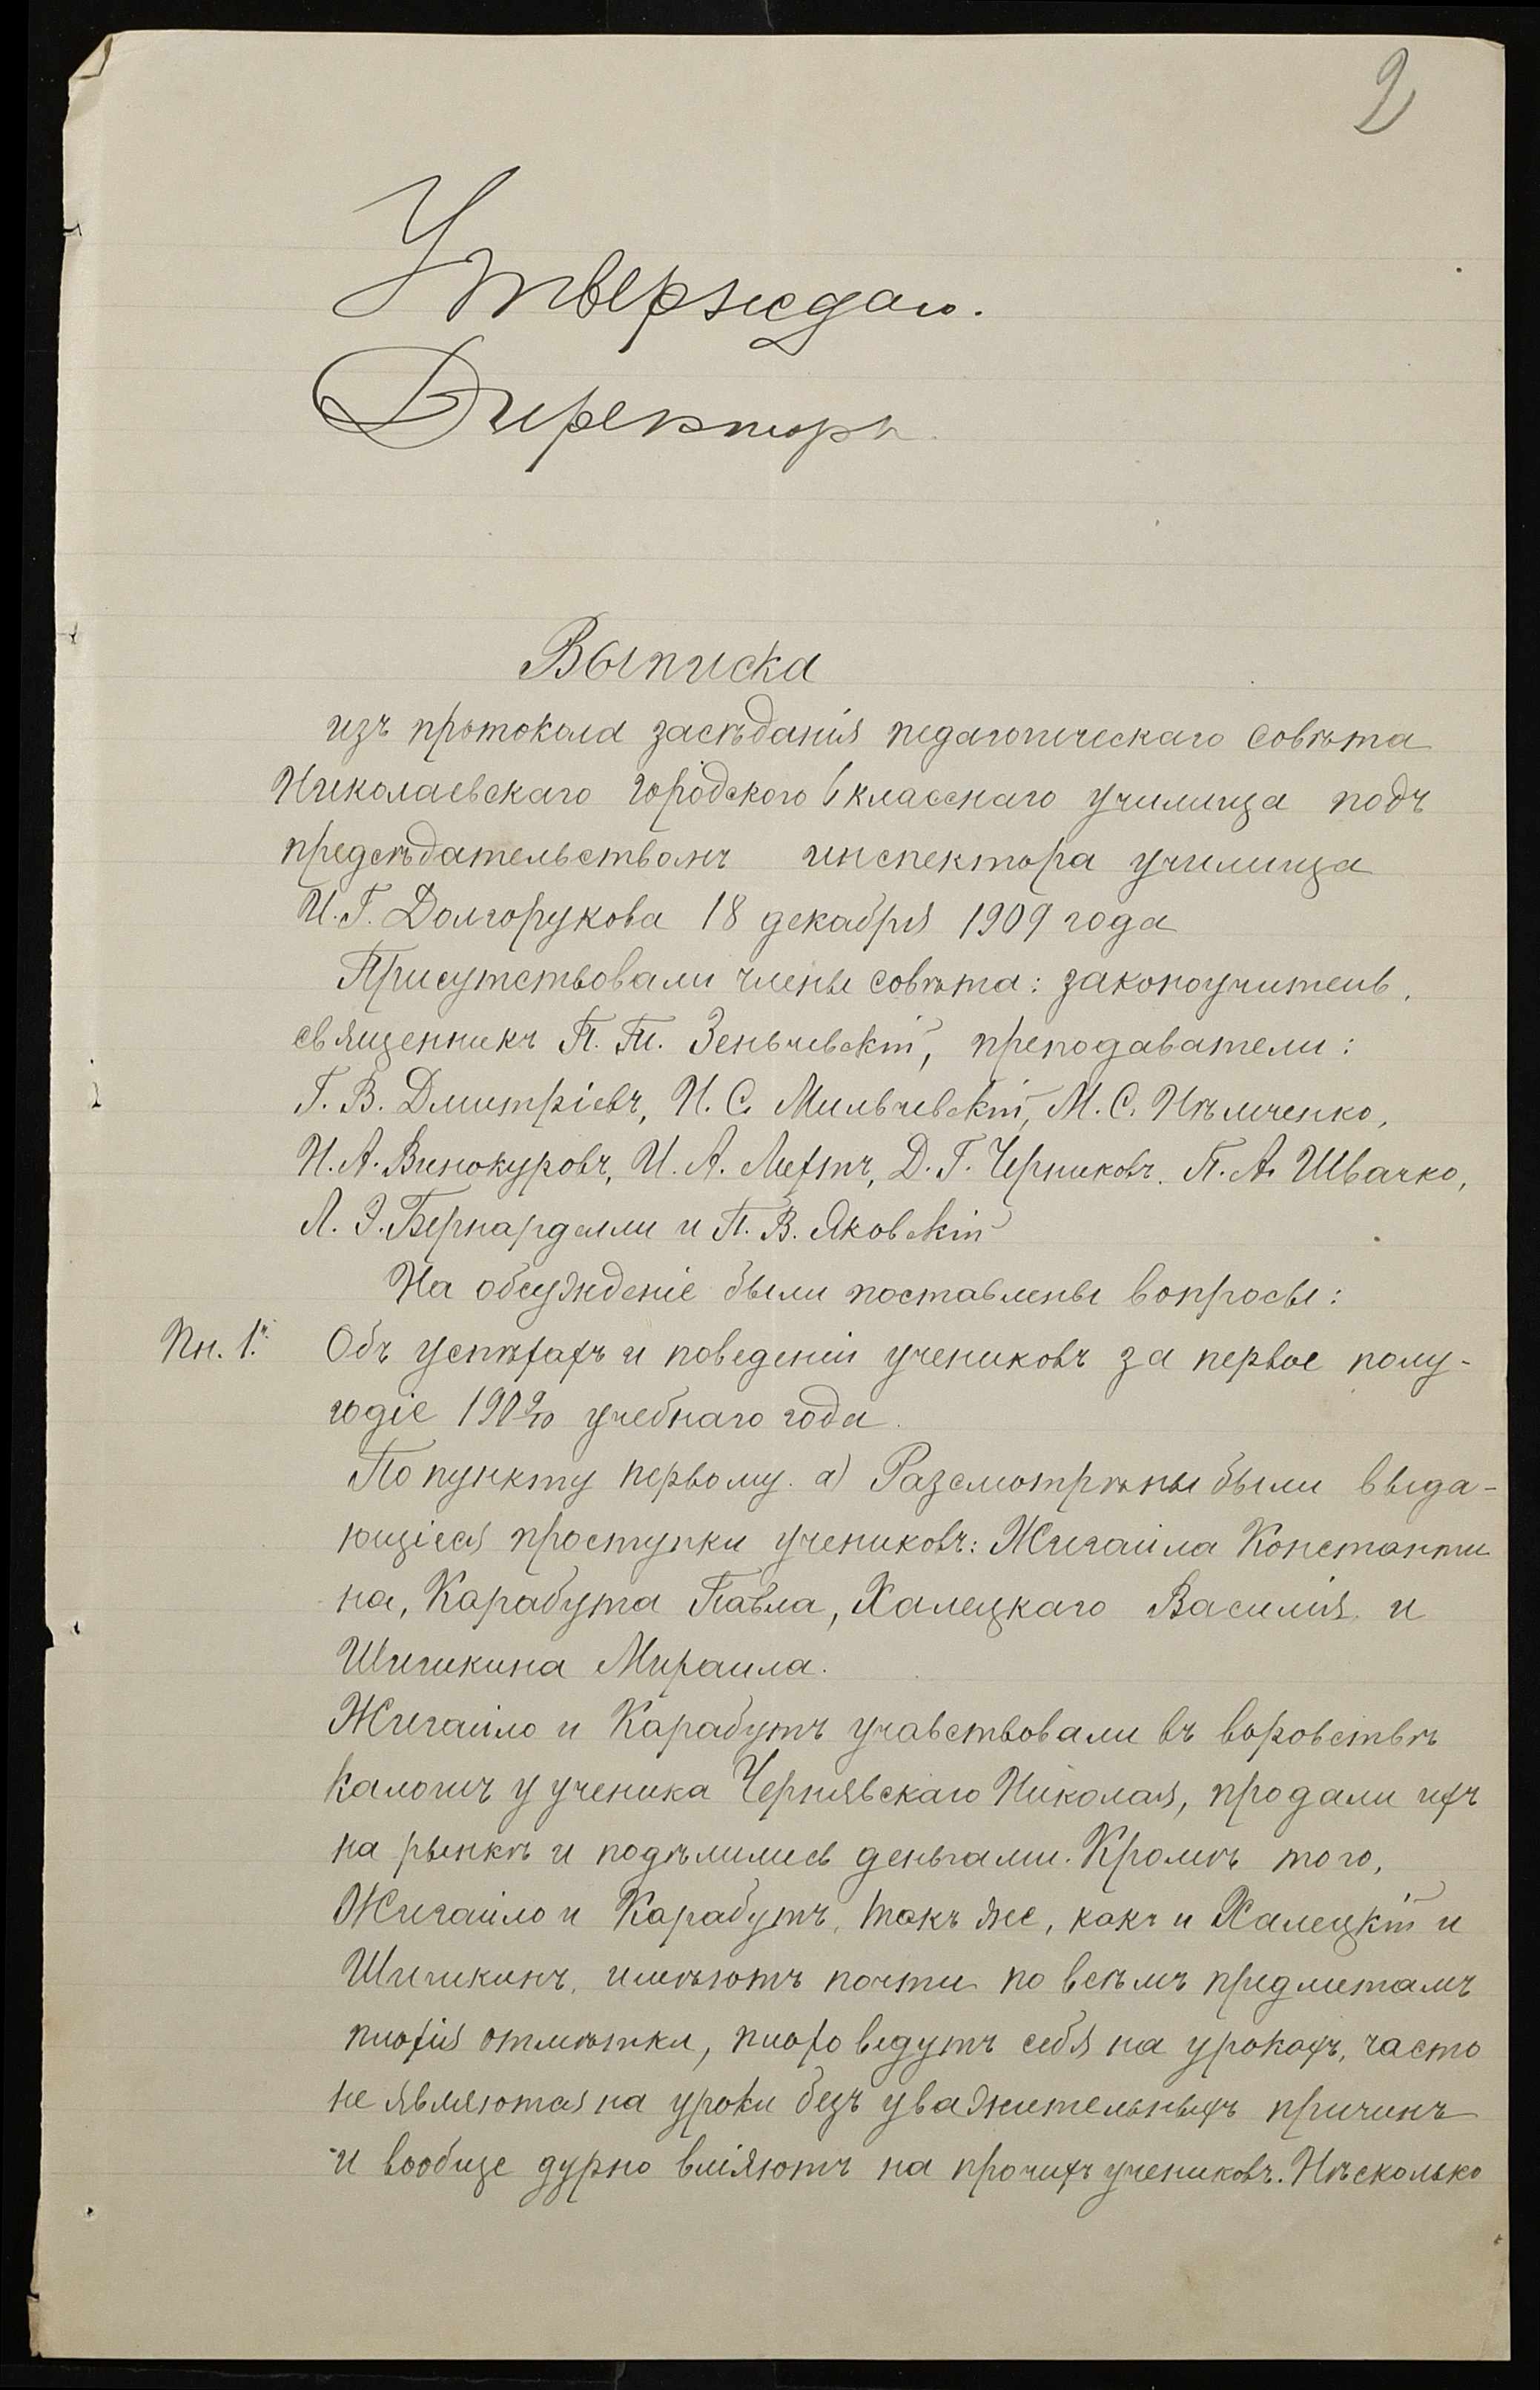 2
Утверждаю.
Директоръ
Выписка
изъ протокола засѣданія педагогическаго совѣта
Николаевскаго городского 6 класснаго училища подъ
предсѣдательствомъ инспектора училища
И. Г. Долгорукова 18 декабря 1909 года
Присутствовали члены совѣта: законоучитель,
священникъ П. Зеньчевскій, преподаватели:
Г. В. Дмитріевъ, И. С. Мильчевскій, М. С. Нѣмченко,
И. А. Винокуровъ, И. А. Лифтъ, Д. Г. Черниковъ. П. А. Швачко,
Л. Э. Бернарделли и П. В. Яковскій
На обсужденіе были поставлены вопросы:
Пн. 1.й Объ успѣхахъ и поведеніи учениковъ за первое полу-
годіе 1909/10 учебнаго года.
По пункту первому. а) Разсмотрѣны были выда-
ющіеся проступки учениковъ: Жигайла Константи
на, Карабута Павла, Халецкаго Василія и
Шишкина Михаила.
Жигайло и Карабутъ учавствовали въ воровствѣ
калошъ у ученика Чернявскаго Николая, продали ихъ
на рынкѣ и подѣлились деньгами. Кромѣ того,
Жигайло и Карабутъ, такъ же, какъ и Халецкій и
Шишкинъ, имѣютъ почти по всѣмъ предметамъ
плохія отмѣтки, плохо ведутъ себя на урокахъ, часто
не являются на уроки безъ уважительныхъ причинъ
и вообще дурно вліяютъ на прочихъ учениковъ. Нѣсколько